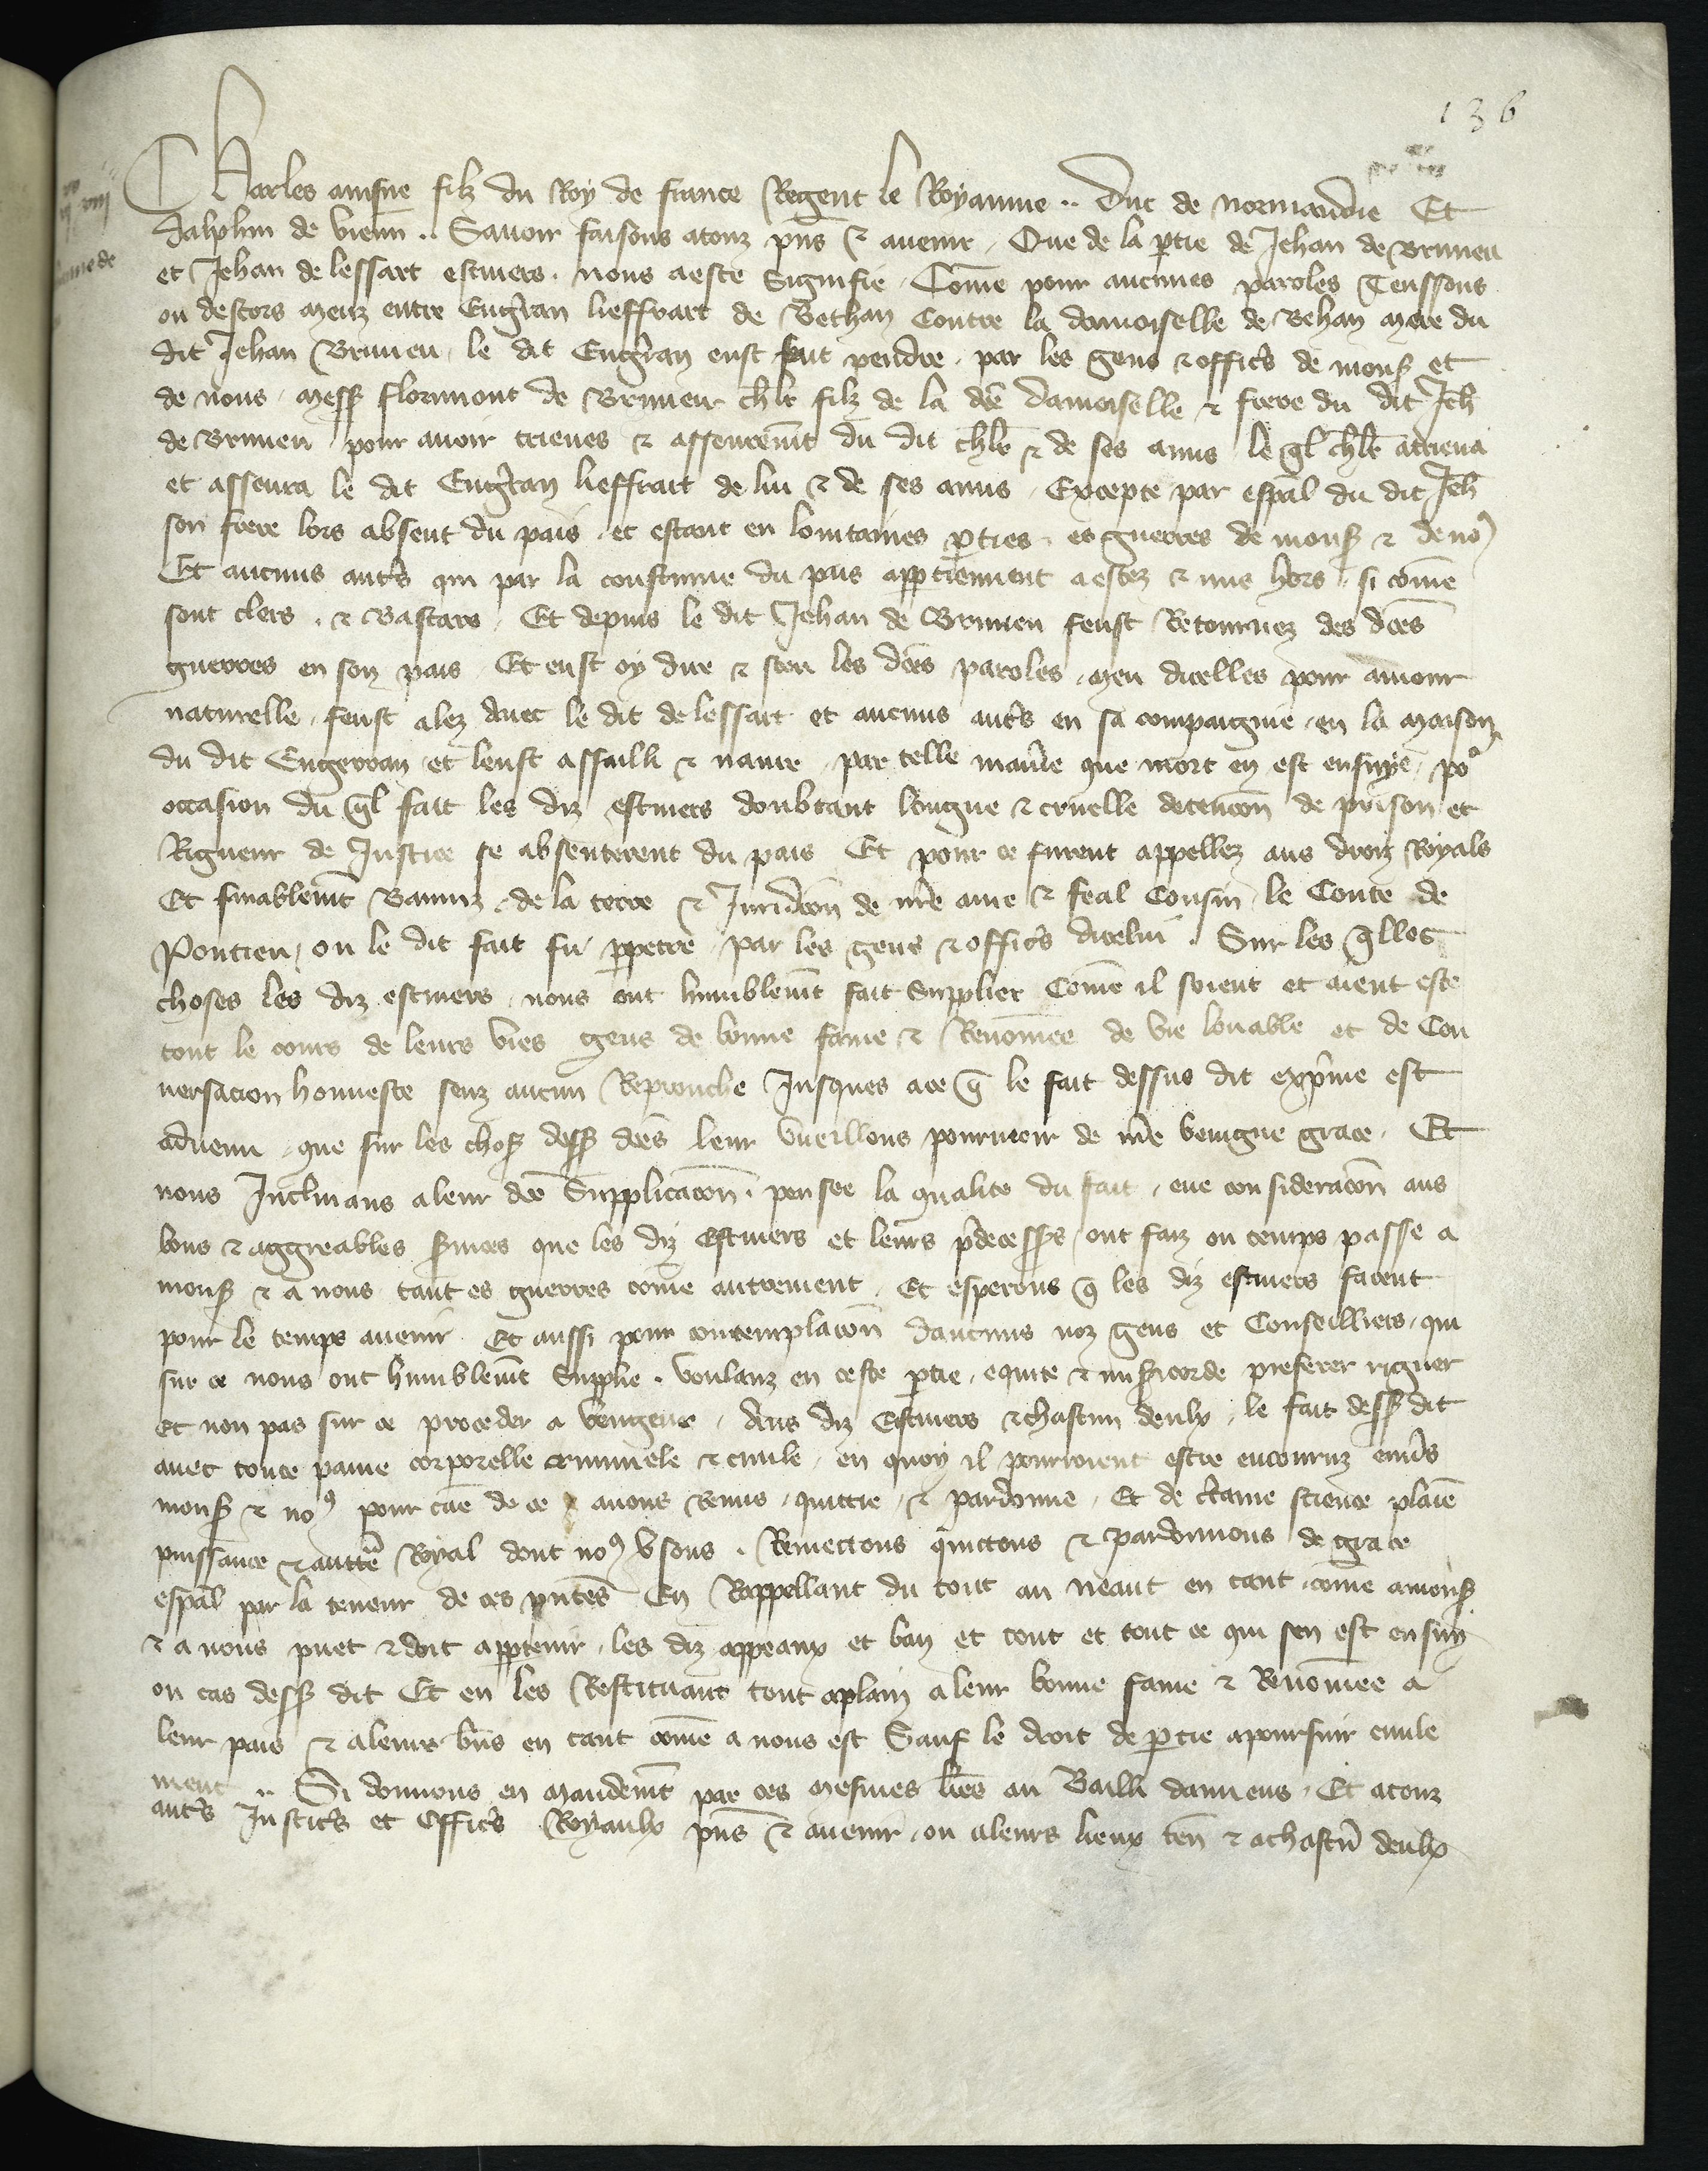 136
Charles ainsne filz du Roy de france Regent le Royaume .. Duc de normandie Et
Dalphin de vienn̄ .. Sauoir faisons atouz pn̄s & auenir , Que de la ptie de Jehan de Brimeu
et Jehan de lessart escuiers . nous aeste Signifie , Cōme pour aucunes paroles Tenssons
ou descors meuz entre Engˀran lieffrart de Bethan Contre la damoiselle de Behan mere du
dit Jehan Brimeu , le dit Engˀran eust fait pendre , par les gens & officˀs de mons et
de nous , mess florimont de Brimeu chlr filz de la dcē damoiselle & frere du dit Jeh̄
de Brimeu pour auoir trieues & asseuremt̄ du dit chlr & de ses amis le ql̄ chlr atriena
et asseura le dit Engˀran lieffrart de lui & de ses amis , Excepte par esp̄al du dit Jeh̄
son frere lors absent du pais , et estant en lointaines pties , es guerres de mons & de no⁹
Et aucuns autˀs qui par la coustume du pais apptiennent aestez & mis hors , si cōme
sont clers . & Bastars , Et depuis le dit Jehan de Brimeu feust Retournez des dcēs
guerres en son pais Et eust oy dire & sceu les dcēs paroles , meu dicelles pour amour
naturelle , feust alez auec le dit de lessart et aucuns autˀs en sa compaignie , en la maison
du dit Engerran et leust assailli & naure , par telle manˀe que mort en est ensuye , po
occasion du ql̄ fait les diz escuiers doubtant longue & cruelle detencōn de prison et
Rigueur de Justice se absenterent du pais Et pour ce furent appellez aus droiz Royals
Et finablemt̄ Banniz , de la terre & Juridcōn de nr̄e ame & feal Cousin le Conte de
Pontieu , ou le dit fait fu ppetre , par les gens & officˀs dicelui . Sur les q̄lles
choses les diz escuiers , nous ont humblemt̄ fait Supplier Cōme il soient et aient este
tout le cours de leurs vies gens de bonne fame & Renōmee de vie louable et de Con
uersacion honneste senz aucun Reprouche Jusques ace q̄ le fait dessus dit exp̄me est
aduenu , que sur les chos dess dcēs leur vueillons pourueoir de nr̄e benigne grace . Et
nous Inclinans aleur dcē Supplicacōn . pensee la qualite du fait , eue consideracōn aus
bons & aggreables ſuices que les diz Escuiers et leurs p̄decessˀs ont faiz ou temps passe a
mons & a nous tant es guerres cōme autrement , Et esperons q̄ les diz escuiers facent
pour le temps auenir Et aussi pour contemplacōn daucuns noz gens et Conseilliers , qui
sur ce nous ont humblemt̄ Supplie . voulanz en ceste ptie , equite & misˀicorde preferer riguer
et non pas sur ce proceder a vengence , Aus diz Escuiers & chascun deulx , le fait dess dit
auec toute paine corporelle criminele & ciuile , en quoy il pourroient estre encouruz enuˀs
mons & no⁹ pour cāe de ce auons Remis , quitte , & pardonne , Et de cˀtaine science plaīe
puissance & auttē Royal dont no⁹ vsons . Remectons quictons & pardonnons de grace
esp̄al par la teneur de ces pn̄tes En Rappellant du tout au neant en tant , cōme amons
& a nous puet & doit apptenir , les diz appeaux et ban et tout et tout ce qui sen est ensuy
ou cas dess dit Et en les Restituant tout aplain aleur bonne fame & Renōmee a
leur pais & aleurs bn̄s en tant cōme a nous est Sauf le droit de ptie apoursuir ciuile
ment .. Si donnons en mandemt̄ par ces mesmes lr̄es au Bailli damiens , Et atouz
autˀs Justicˀs et Officˀs Royaulx pn̄s & auenir , ou aleurs lieux ten̄ & achascū deulx